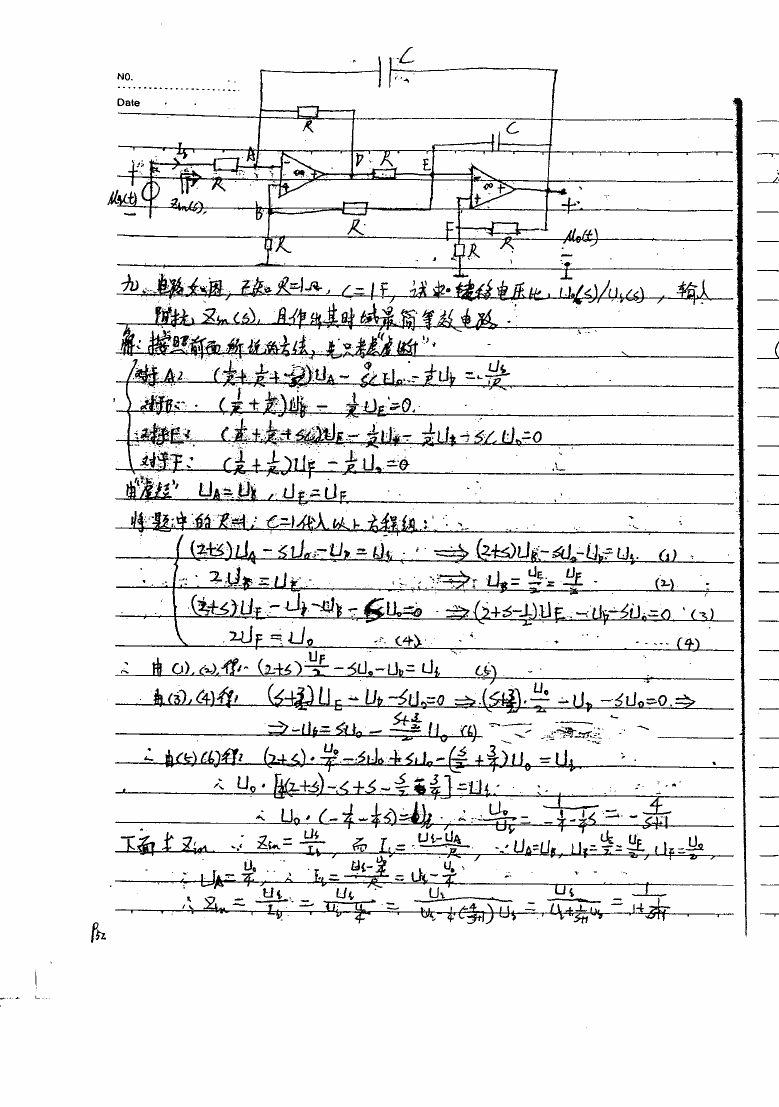 NO.
Date
C
R
C
Is
A
D
R
E
R
∞
∞
Us(t)
Zin(s)
B
R
R
F
R
R
Uo(t)
九、电路如图，已知R=1Ω，C=1F，试求转移电压比Uo(s)/Us(s)，输入
阻抗Zin(s)，且作出其时域最简等效电路.
解：按照前面所说的方法，先只考虑"虚断"：
对于A： (1/R+1/R+sC)UA - sCUo - 1/R UD = Us/R
对于B： (1/R+1/R)UB - 1/R UE=0.
对于E： (1/R+1/R+sC)UE - 1/R UD - 1/R UB - sCUo=0
对于F： (1/R+1/R)UF - 1/R Uo=0
由"虚短" UA=UB，UE=UF
将题中的R=1，C=1代入以上方程组：
(2+s)UA - sUo - UD = Us ⇒ (2+s)UB - sUo - UD = Us (1)
2UB = UE ⇒ UB = UE/2 = UF/2 (2)
(2+s)UE - UD - UB - sUo=0 ⇒ (2+s-1/2)UF - UD - sUo=0 (3)
2UF = Uo (4) (4)
∴ 由(1),(2),得： (2+s)UF/2 - sUo - UD = Us (5)
由(3),(4)得： (s+3/2)UE - UD - sUo=0 ⇒ (s+3/2)·Uo/2 - UD - sUo=0 ⇒
⇒ -UD = sUo - (s+3/2)/2 Uo (6)
∴ 由(5)(6)得： (2+s)·Uo/4 - sUo + sUo - (s/2+3/4)Uo = Us
∴ Uo·[1/4(2+s) - s + s - s/2 - 3/4] = Us
∴ Uo·(-1/4 - 1/4s) = Us，∴ Uo/Us = 1/(-1/4-1/4s) = -4/(s+1)
下面求Zin ∵ Zin = Us/Is，而 Is = (Us-UA)/R，∵ UA=UB，UB=UE/2=UF/2，UF=Uo/2，
∴ UA = Uo/4，∴ Is = (Us-Uo/4)/R = Us - Uo/4
∴ Zin = Us/Is = Us/(Us-Uo/4) = Us/(Us-1/4(-4/(s+1))Us) = Us/(Us+1/(s+1)Us) = 1/(1+1/(s+1))
P52